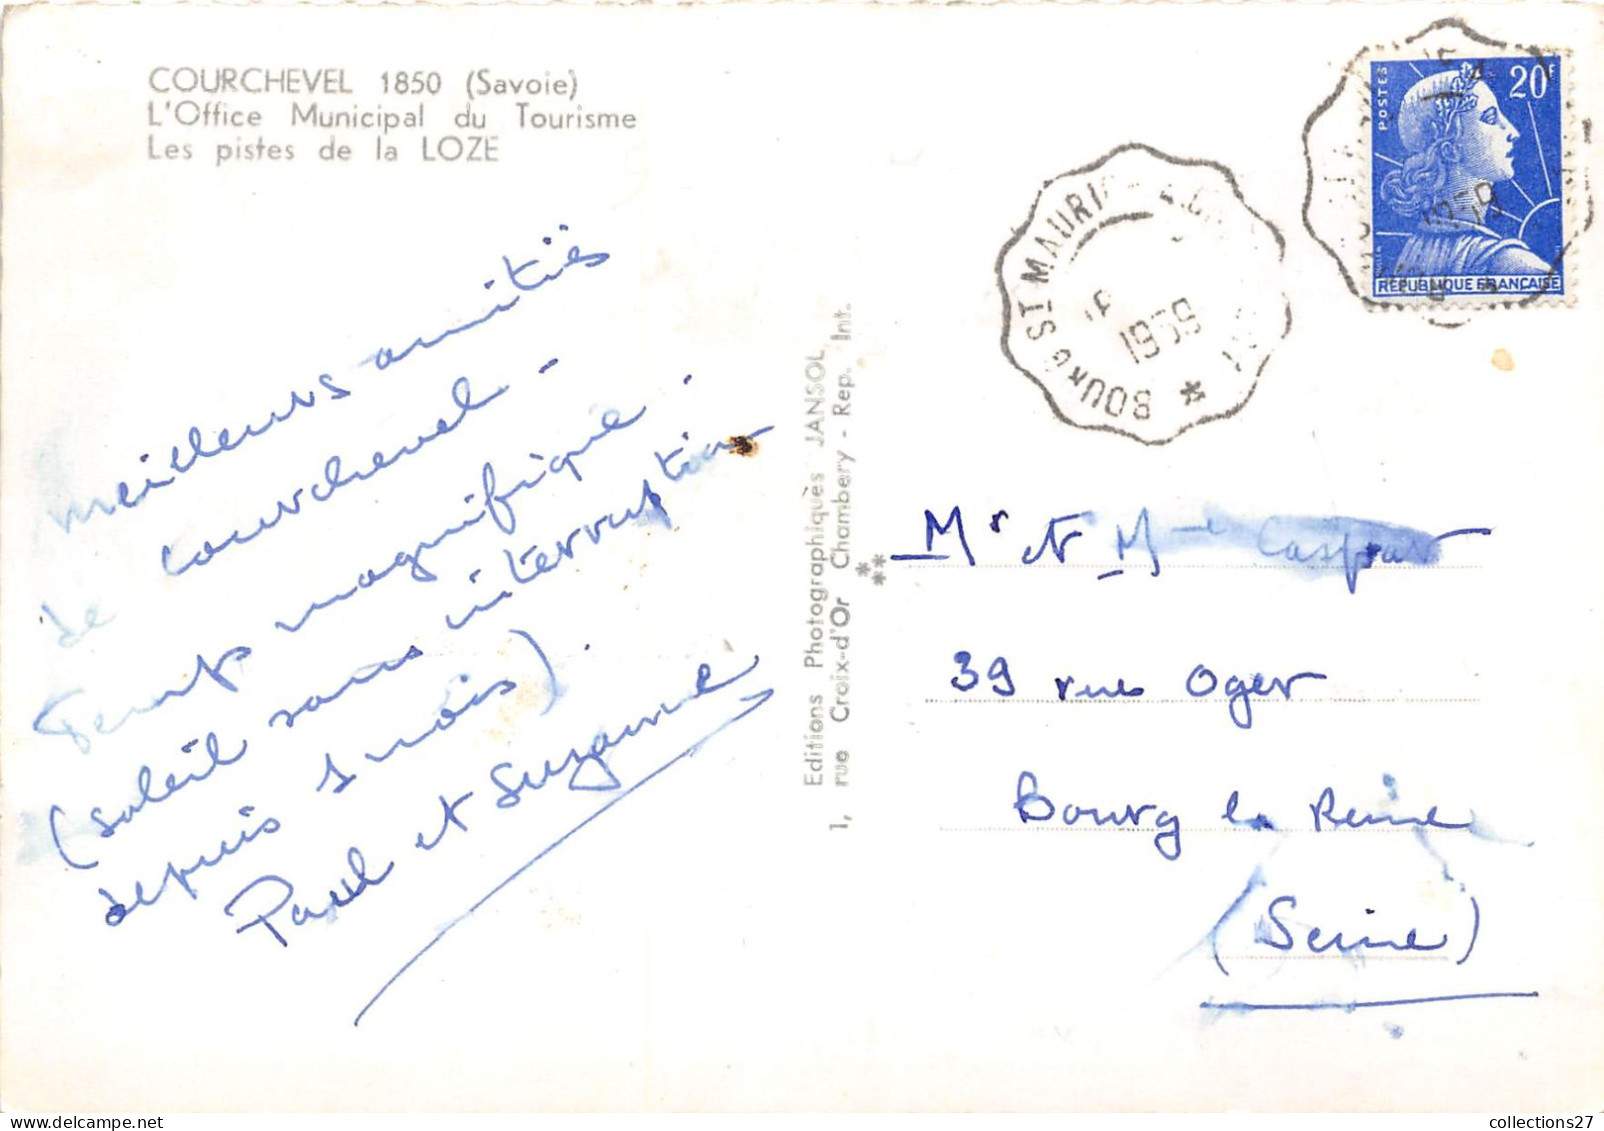 COURCHEVEL 1850 (Savoie)
L'Office Municipal du Tourisme
Les pistes de la LOZE
meilleurs amitiés
de courchevel -
Temps magnifique -
(soleil sans interruption
depuis 1 mois).
Paul et Suzanne
Editions Photographiques JANSOL
1, rue Croix-d'Or Chambery - Rep. Int.
POSTES
20F
REPUBLIQUE FRANÇAISE
1959
BOURG ST MAURICE
1959
Mr et Mme Caspar
39 rue Oger
Bourg la Reine
(Seine)
collections27